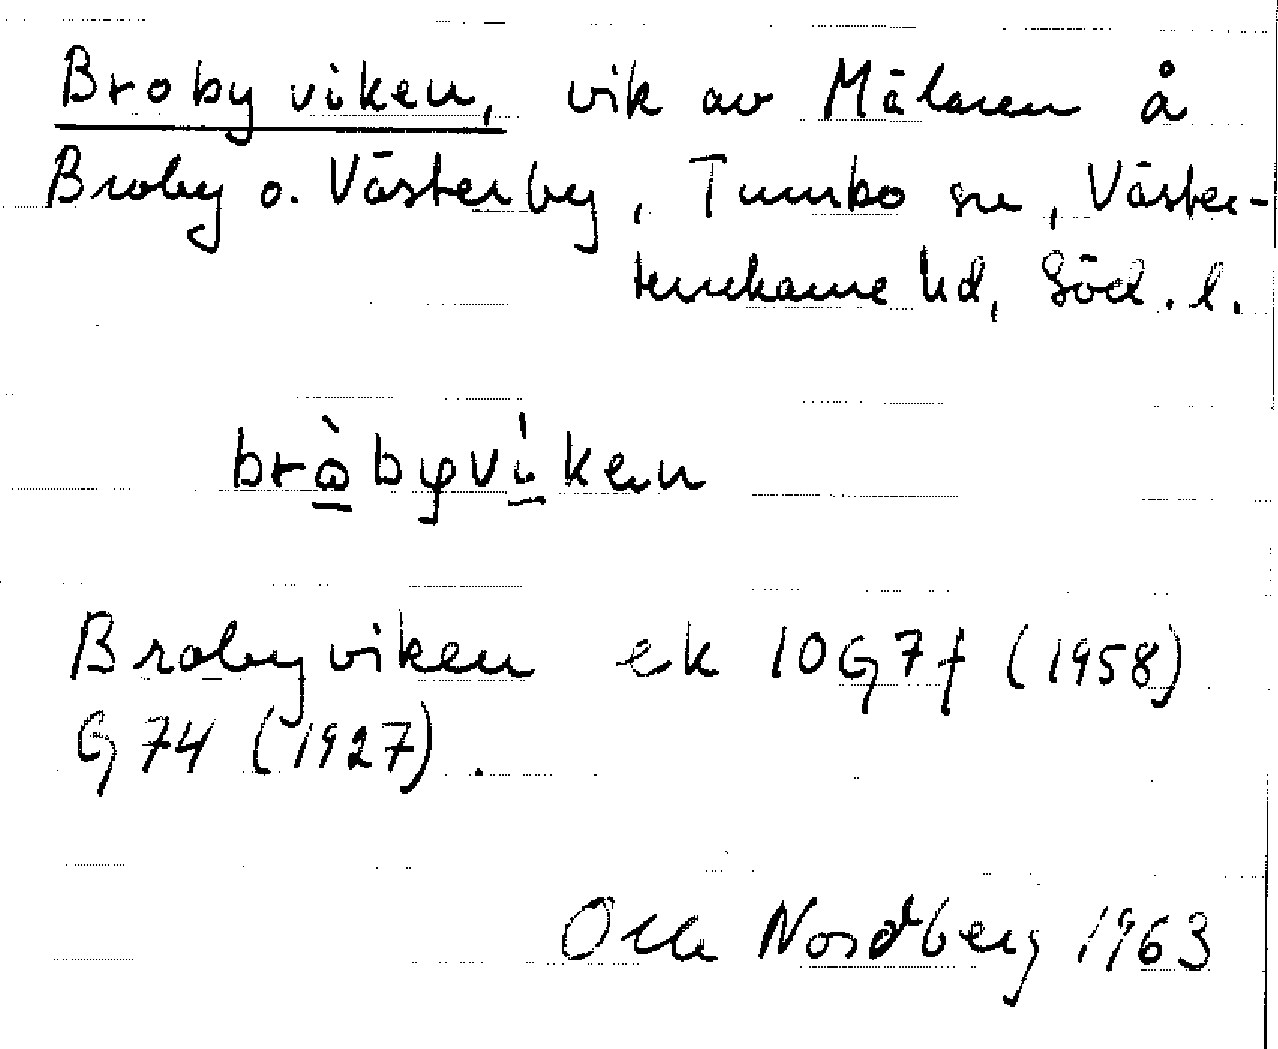 Brobyviken, vik av Mälaren å
Broby o. Västerby, Tumbo sn, Väster-
rekarne hd, Söd. l.
brò̱byvi̱ken
Brobyviken ek 10G7f (1958)
G74 (1927).
Olle Nordberg 1963